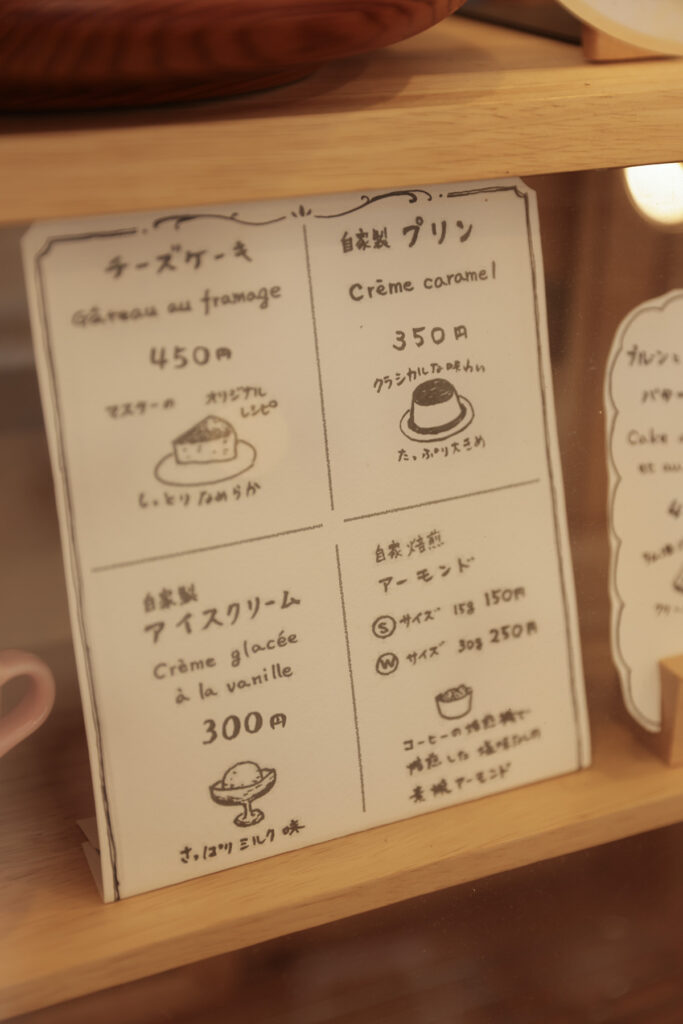 チーズケーキ
Gâteau au framage
450円
マスターの オリジナル
レシピ
しっとりなめらか
自家製 プリン
Crème caramel
350円
クラシカルな味わい
たっぷり大きめ
自家製
アイスクリーム
Crème glacée
à la vanille
300円
さっぱりミルク味
自家焙煎
アーモンド
Ⓢサイズ 15g 150円
Ⓦサイズ 30g 250円
コーヒーの焙煎機で
焙煎した 塩味なしの
アーモンド
プルーンと
バター
Cake
et au